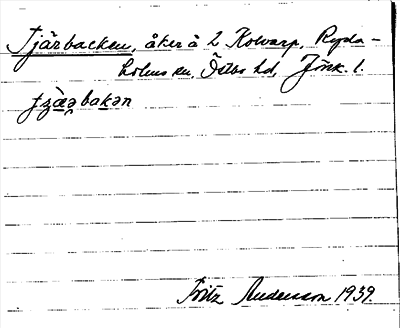 Tjärbacken, åker å L Kolvarp, Ryda-
holms sn, Östbo hd, Jönk. l.
bakən
Fritz Andersson 1939.